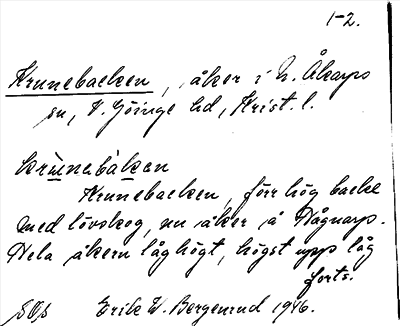 1-2.
Krunebacken, åker i N. Åkarps
sn, V. Göinge hd, Krist. l.
krùnebàken
Krunebacken, förr hög backe
med lövskog, nu åker å Vågnarp.
Hela åkern låg högt, högst upp låg
forts.
Erik W. Bergenrud 1946.